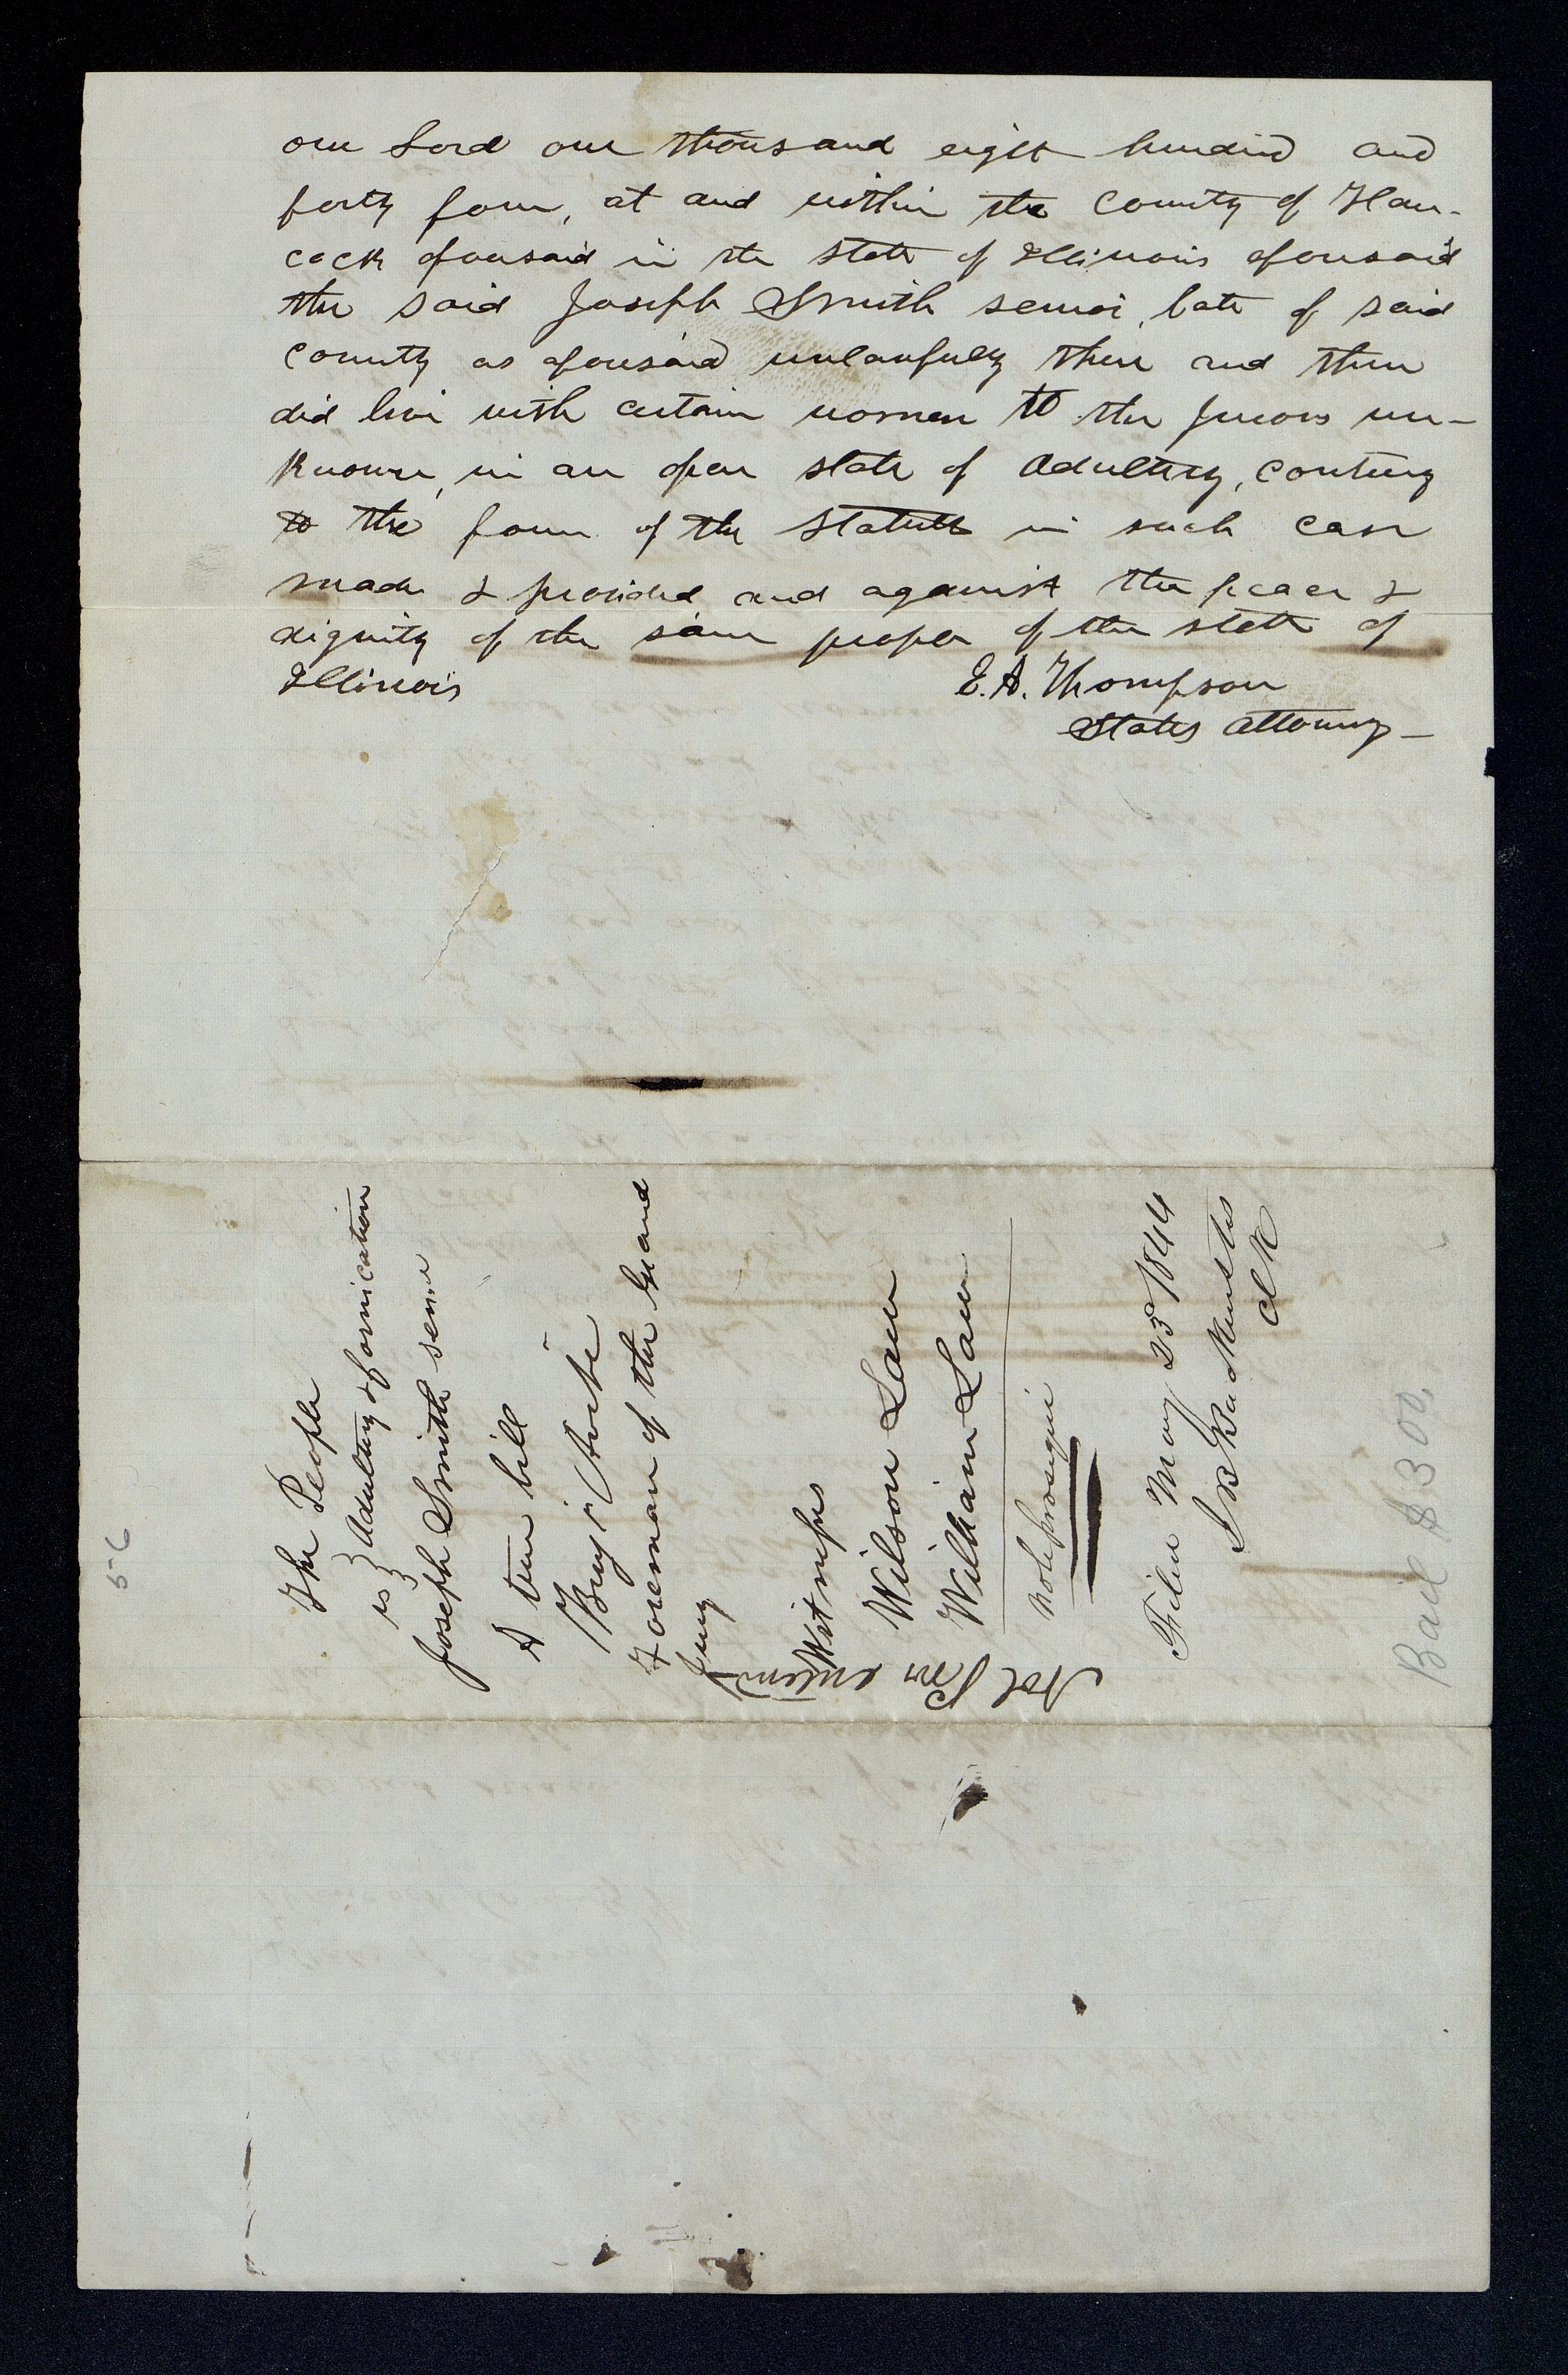 our Lord one thousand eight hundred and
forty four, at and within the County of Han-
cock aforesaid in the State of Illinois aforesaid
the said Joseph Smith senior, late of said
County as aforesaid unlawfully there and then
did live with certain women to the Jurors un-
known, in an open state of Adultery, contrary
to the form of the Statute in such case
made & provided and against the peace &
dignity of the same people of the state of
Illinois
E. A. Thompson
States Attorney
The People
vs } Adultery & fornication
Joseph Smith senior
A true bill
Foreman of the Grand
Jury
Witnesses
Wilson Law
William Law
Nole prosequi
Nol Pros entered
Filed May 23 1844
J B Backenstos
Clk
Bail $300,
5-6